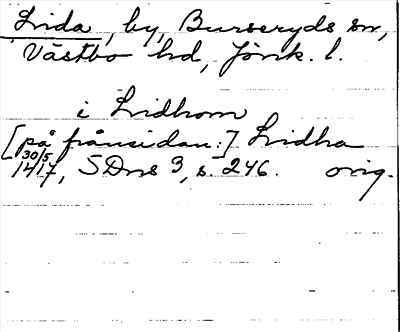 Lida, by, Burseryds sn,
Västbo hd, Jönk. l.
i Lidhom
[på frånsidan:] Lidha
30/5 1417, SDns 3, s. 246. orig.